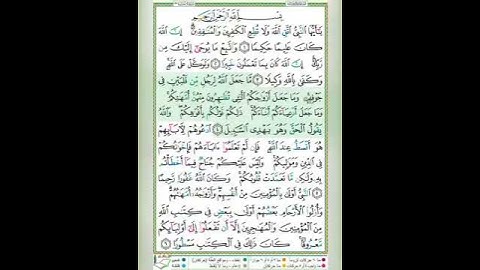 بِسْمِ ٱللَّهِ ٱلرَّحْمَٰنِ ٱلرَّحِيمِ
يَٰٓأَيُّهَا ٱلنَّبِيُّ ٱتَّقِ ٱللَّهَ وَلَا تُطِعِ ٱلْكَٰفِرِينَ وَٱلْمُنَٰفِقِينَ إِنَّ ٱللَّهَ
كَانَ عَلِيمًا حَكِيمًا ١ وَٱتَّبِعْ مَا يُوحَىٰٓ إِلَيْكَ مِن
رَّبِّكَ إِنَّ ٱللَّهَ كَانَ بِمَا تَعْمَلُونَ خَبِيرًا ٢ وَتَوَكَّلْ عَلَى ٱللَّهِ
وَكَفَىٰ بِٱللَّهِ وَكِيلًا ٣ مَّا جَعَلَ ٱللَّهُ لِرَجُلٍ مِّن قَلْبَيْنِ فِي
جَوْفِهِۦ وَمَا جَعَلَ أَزْوَٰجَكُمُ ٱلَّٰٓـِٔي تُظَٰهِرُونَ مِنْهُنَّ أُمَّهَٰتِكُمْ
وَمَا جَعَلَ أَدْعِيَآءَكُمْ أَبْنَآءَكُمْ ذَٰلِكُمْ قَوْلُكُم بِأَفْوَٰهِكُمْ وَٱللَّهُ
يَقُولُ ٱلْحَقَّ وَهُوَ يَهْدِي ٱلسَّبِيلَ ٤ ٱدْعُوهُمْ لِأَٰبَآئِهِمْ
هُوَ أَقْسَطُ عِندَ ٱللَّهِ فَإِن لَّمْ تَعْلَمُوٓا۟ ءَابَآءَهُمْ فَإِخْوَٰنُكُمْ
فِي ٱلدِّينِ وَمَوَٰلِيكُمْ وَلَيْسَ عَلَيْكُمْ جُنَاحٌ فِيمَآ أَخْطَأْتُم
بِهِۦ وَلَٰكِن مَّا تَعَمَّدَتْ قُلُوبُكُمْ وَكَانَ ٱللَّهُ غَفُورًا رَّحِيمًا
٥ ٱلنَّبِيُّ أَوْلَىٰ بِٱلْمُؤْمِنِينَ مِنْ أَنفُسِهِمْ وَأَزْوَٰجُهُۥٓ أُمَّهَٰتُهُمْ
وَأُو۟لُوا۟ ٱلْأَرْحَامِ بَعْضُهُمْ أَوْلَىٰ بِبَعْضٍ فِي كِتَٰبِ ٱللَّهِ
مِنَ ٱلْمُؤْمِنِينَ وَٱلْمُهَٰجِرِينَ إِلَّآ أَن تَفْعَلُوٓا۟ إِلَىٰٓ أَوْلِيَآئِكُم
مَّعْرُوفًا كَانَ ذَٰلِكَ فِي ٱلْكِتَٰبِ مَسْطُورًا ٦